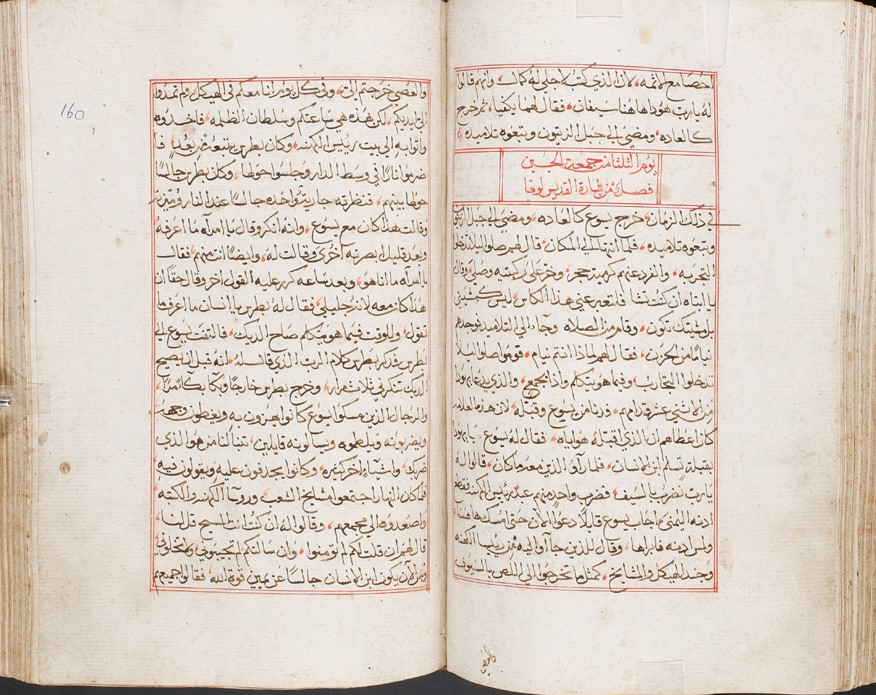 احصا مع الاثمه لان الذي كتب لاجلي له كمال وانهم قالوا
له يا رب هوداهاهنا سيفان فقال لهم يكفيا ثم خرج
كالعاده ومضى الى جبل الزيتون وتبعوه تلاميذه
يوم الثلثا من جمعة الجبن
فصل من بشارة القديس لوقا
في ذلك الزمان خرج يسوع كالعاده ومضى الى جبل الزيتون
وتبعوه تلاميذه فلما انتها الى المكان قال لهم صلوا ليلا تدخلوا
التجربه وانفرد عنهم كرمية حجر وخر على ركبتيه وصلى وقال
يا ابتاه ان كنت تشا فلتعبر عني هذا الكاس ليس كمشيتي
بل مشيتك تكون وقام من الصلاه وجا الى التلاميذ فوجدهم
نياما من الحزن فقال لهم لماذا انتم نيام قوموا صلوا ليلا
تدخلوا التجارب وفيما هو يتكلم واذا بجمع والذي يدعا يهودا
من الاثني عشر قدامهم فدنا من يسوع وقبله لان هذه العلامه
كان اعطاهم ان الذي اقبله هو اياه فقال له يسوع يا يهودا
بقبلة تسلم ابن الانسان فلما راوا الذين معه ما كان قالوا له
يا رب نضرب بالسيف فضرب واحد منهم عبد رييس الكهنه فقطع
اذنه اليمنى اجاب يسوع قليلا دعوا الان حتى امسك هاهنا
ولمس اذنه فابراها وقال للذين جاوا اليه من رييسا الكهنه
وجند الهيكل والمشايخ كمثل ما تخرجوا الى اللص بالسيوف
والعصي خرجتم الي وفي كل يوم انا معكم في الهيكل ولم تمدوا
الي ايديكم لكن هذه هي ساعتكم وسلطان الظلمه فاخذوه
واتوا به الى بيت رييس الكهنه وكان بطرس يتبعه من بعد فا
ضرموا نارا في وسط الدار وجلسوا حولها وكان بطرس جالسا
حولها بينهم فنظرته جارية واحده جالسا عند النار وميزته
وقالت هذا كان مع يسوع وانه انكر وقال يا امراه ما اعرفه
وبعد قليل ابصرته اخرى وقالت له وايضا انت منهم فقال
يا امراه ما انا هو وبعد ساعه كرر عليه القول اخر وقال حقا ان
هذا كان معه لانه جليلي فقال له بطرس يا انسان ما اعرف ما
تقول وللوقت فيما هو يتكلم صاح الديك فالتفت يسوع الى
بطرس فذكر بطرس كلام الرب الذي قال له انه قبل ان يصيح
الديك تنكرني ثلاث مرار وخرج بطرس خارجا وبكا بكا مرا
والرجال الذين مسكوا يسوع كانوا يهزون به ويغطون وجهه
ويضربونه ويلطموه ويسالونه قايلين تنبا لنا من هو الذي
ضربك واشياء اخر كثيره وكانوا يجدفون عليه ويقولون فيه
فلما كان النهار اجتمعوا مشايخ الشعب وروسا الكهنه والكتبه
واصعدوه الى مجمعهم وقالوا له ان كنت انت المسيح قل لنا
قال لهم ان قلت لكم لم تومنوا وان سالتكم لم تجيبوني ولا تخلوني
ومن الان يكون ابن الانسان جالسا عن يمين قوة الله فقالوا جميعهم
160
والعصي